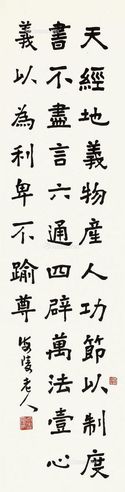 天經地義物産人功節以制度
書不盡言六通四辟萬法壹心
義以為利卑不踰尊
老人